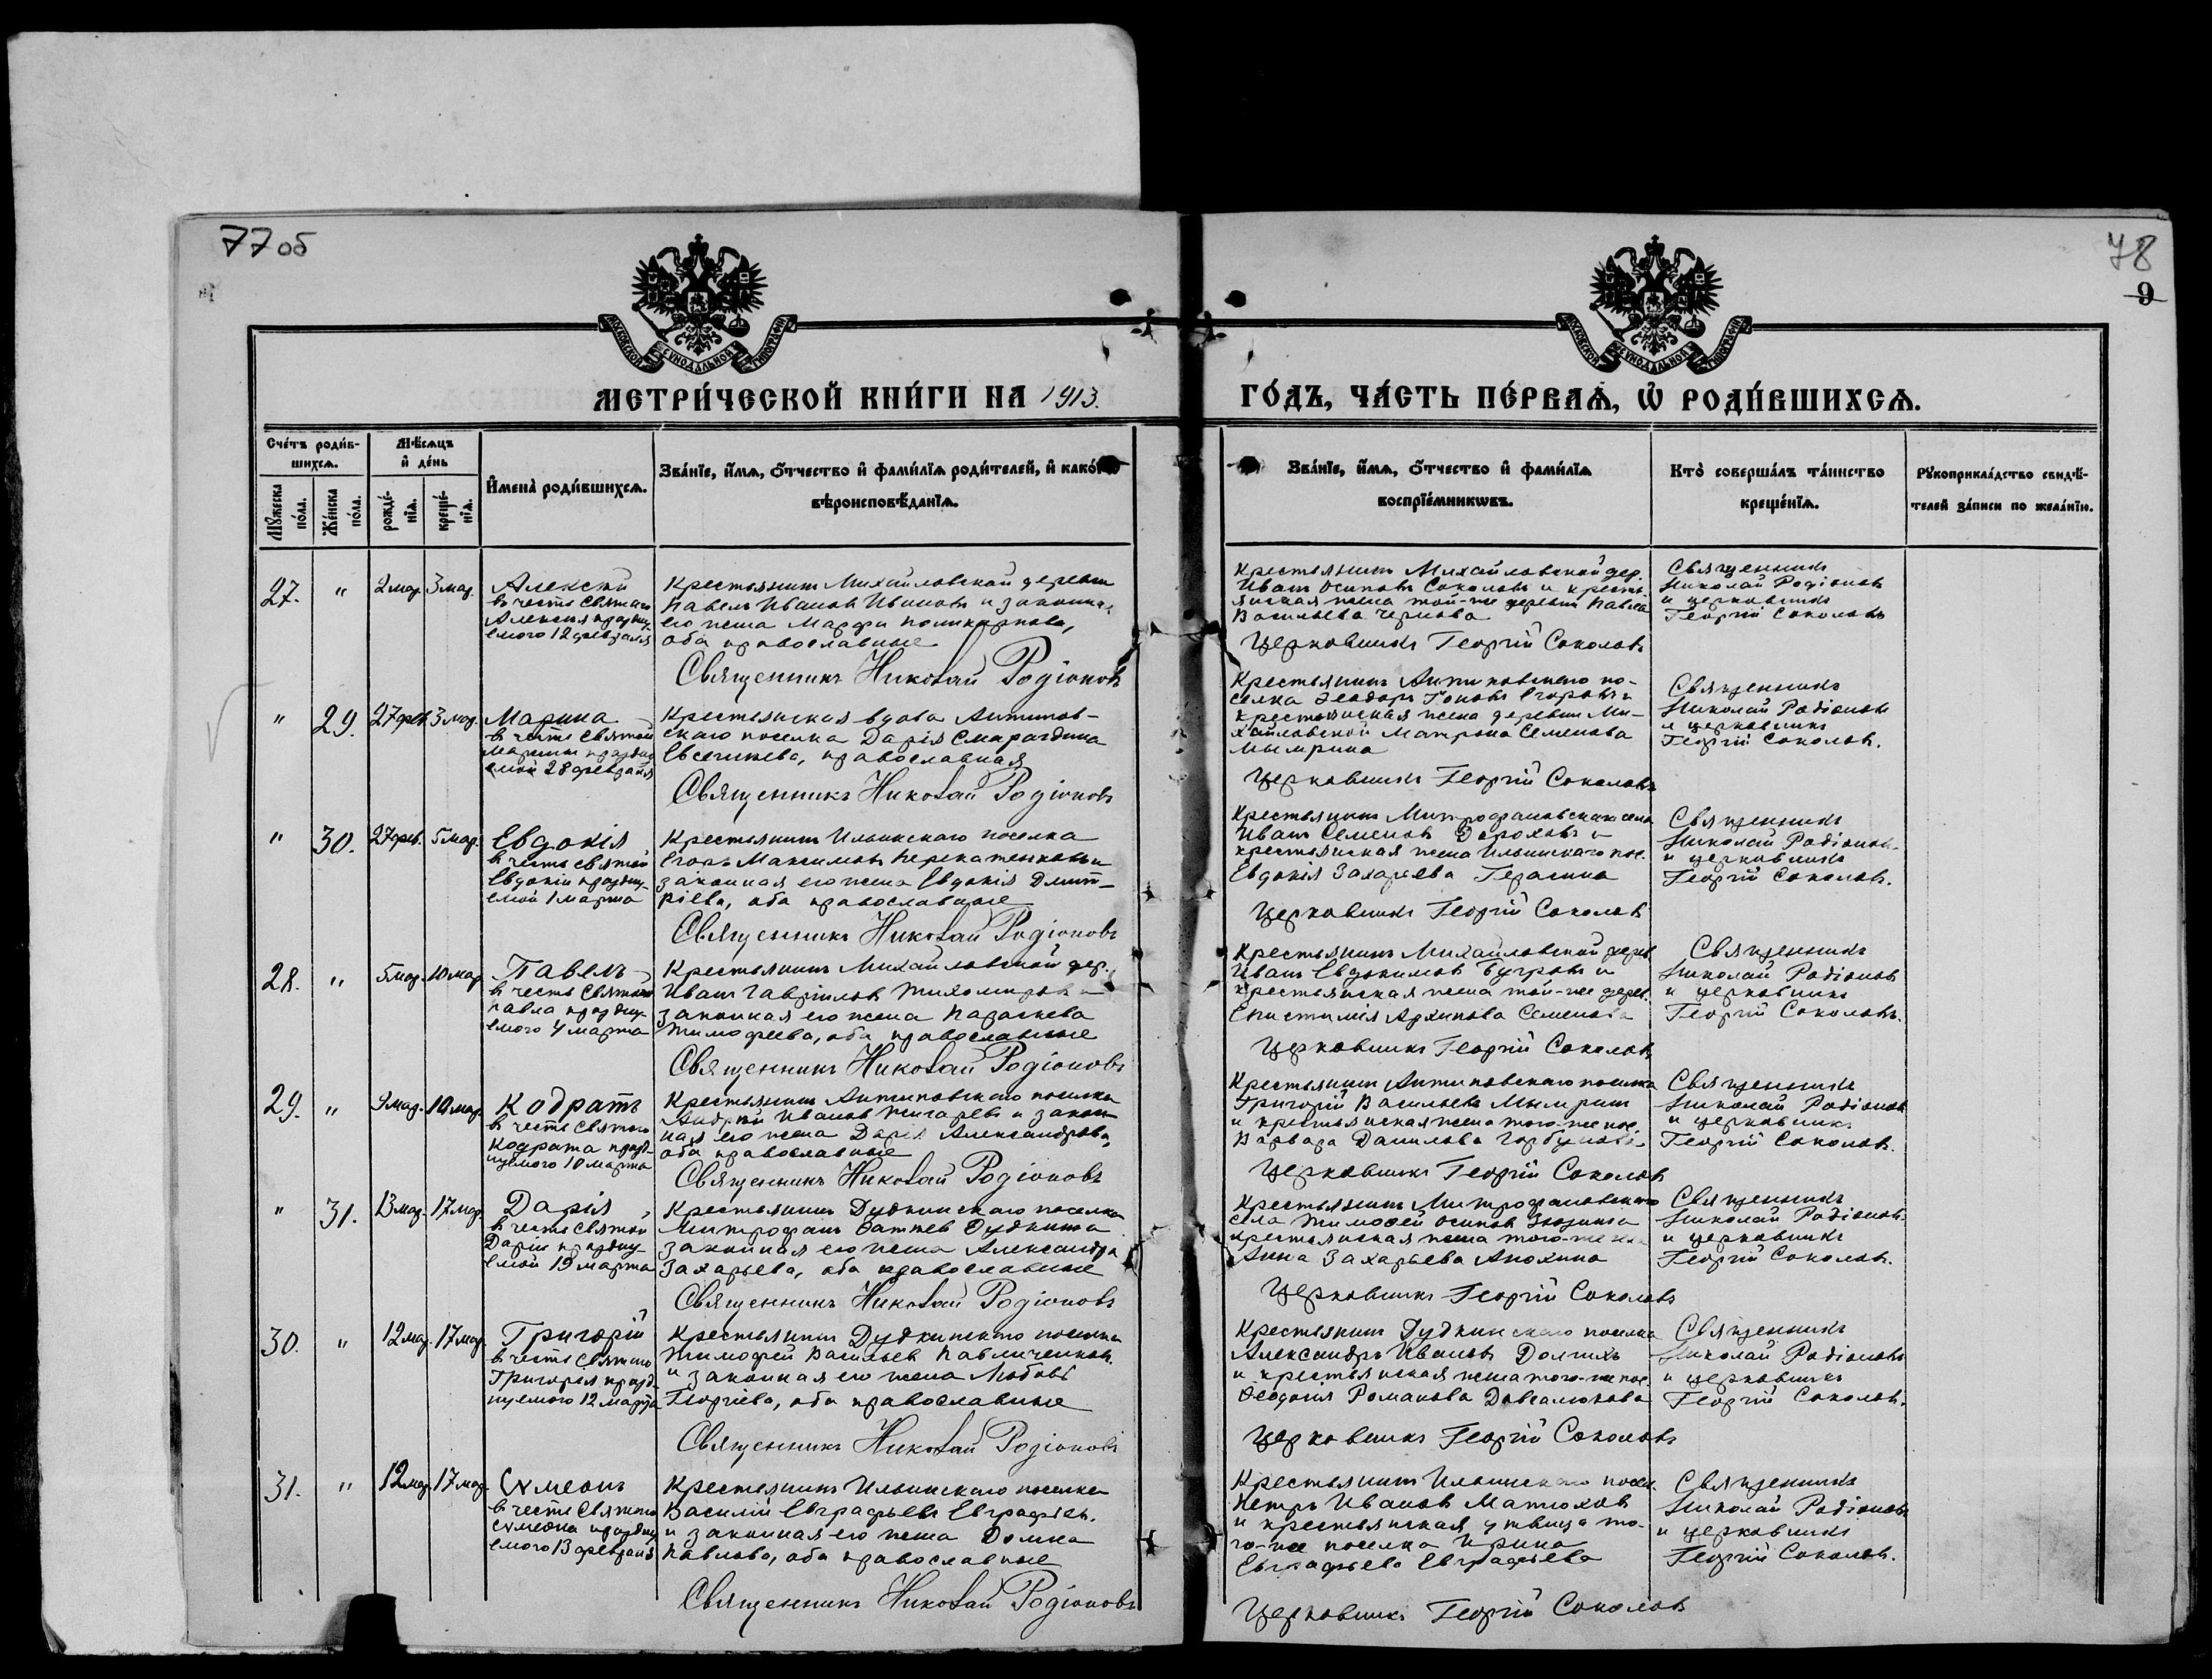 77 об
78
9
МОСКОВСКОЙ СѴНОДАЛЬНОЙ ТИПОГРАФІИ
МОСКОВСКОЙ СѴНОДАЛЬНОЙ ТИПОГРАФІИ
МЕТРИ́ЧЕСКОЙ КНИ́ГИ НА 1913.
ГО́ДЪ, ЧА́СТЬ ПЕ́РВАѦ, Ѡ҆ РОДИ́ВШИХСѦ.
Сче́тъ роди́в-
шихсѧ.
Мꙋ́жеска
по́ла.
Же́нска
по́ла.
Мѣ́сѧцъ
и҆ де́нь
рожде́-
нїѧ.
креще́-
нїѧ.
И҆мена̀ роди́вшихсѧ.
Зва́нїе, и҆́мѧ, ѻ҆́тчество и҆ фами́лїѧ роди́телей, и҆ како́гѡ
вѣроисповѣ́данїѧ.
Зва́нїе, и҆́мѧ, ѻ҆́тчество и҆ фами́лїѧ
воспрїе́мникѡвъ.
Кто̀ соверша́лъ та́инство
креще́нїѧ.
Рꙋкоприкла́дство свидѣ́-
телей за́писи по жела́нїю.
27.
"
2 мар.
3 мар.
Алексѣй
въ честь святаго
Алексія праздну-
емого 12 февраля
Крестьянинъ Михайловской деревни
Павелъ Ивановъ Ивановъ и законная
его жена Марфа Поликарпова,
оба православные
Священникъ Николай Родіоновъ
Крестьянинъ Михайловской дер.
Иванъ Осиповъ Соколовъ и кресть-
янская жена той-же деревни Павла
Васильева Чернова
Церковникъ Георгій Соколовъ
Священникъ
Николай Родіоновъ
и церковникъ
Георгій Соколовъ
"
29.
27 фев.
3 мар.
Марина
въ честь святой
Марины праздну
емой 28 февраля
Крестьянская вдова Антипов-
скаго поселка Дарія Смарагдина
Евсегнеева, православная
Священникъ Николай Родіоновъ
Крестьянинъ Антиповскаго по-
селка Ѳеодоръ Іоновъ Егоровъ и
крестьянская жена деревни Ми-
хайловской Матрона Семенова
Мымрина
Церковникъ Георгій Соколовъ
Священникъ
Николай Родіоновъ
и церковникъ
Георгій Соколовъ.
"
30.
27 фев.
5 мар.
Евдокія
въ честь святой
Евдокіи праздну-
емой 1 марта
Крестьянинъ Ильинскаго поселка
Егоръ Максимовъ Перекатенковъ и
законная его жена Евдокія Дмит-
ріева, оба православные
Священникъ Николай Родіоновъ
Крестьянинъ Митрофановскаго села
Иванъ Семеновъ Дороховъ и
крестьянская жена Ильинскаго пос.
Евдокія Захарьева Герасина
Церковникъ Георгій Соколовъ
Священникъ
Николай Родіоновъ
и церковникъ
Георгій Соколовъ.
28.
"
5 мар.
10 мар.
Павелъ
въ честь святаго
Павла праздну-
емого 4 марта
Крестьянинъ Михайловской дер.
Иванъ Гавріиловъ Тихомировъ и
законная его жена Параскева
Тимофеева, оба православные
Священникъ Николай Родіоновъ
Крестьянинъ Михайловской дерев.
Иванъ Евдокимовъ Бугровъ и
крестьянская жена той-же дерев.
Епистимія Архипова Семенова
Церковникъ Георгій Соколовъ
Священникъ
Николай Родіоновъ
и церковникъ
Георгій Соколовъ.
29.
"
9 мар.
10 мар.
Кодратъ
въ честь святаго
Кодрата празд-
нуемого 10 марта
Крестьянинъ Антиповскаго поселка
Андрей Ивановъ Жигаревъ и закон-
ная его жена Дарія Александрова,
оба православные
Священникъ Николай Родіоновъ
Крестьянинъ Антиповскаго поселка
Григорій Васильевъ Мымринъ
и крестьянская жена того-же пос.
Варвара Данилова Горбунова
Церковникъ Георгій Соколовъ
Священникъ
Николай Родіоновъ
и церковникъ
Георгій Соколовъ.
"
31.
13 мар.
17 мар.
Дарія
въ честь святой
Даріи праздну-
емой 19 марта
Крестьянинъ Дудкинскаго поселка
Митрофанъ Фатеевъ Дудкинъ и
законная его жена Александра
Захарьева, оба православные
Священникъ Николай Родіоновъ
Крестьянинъ Митрофановскаго
села Тимоѳей Осиповъ Зюзинъ и
крестьянская жена того-же села
Анна Захарьева Анохина
Церковникъ Георгій Соколовъ
Священникъ
Николай Родіоновъ
и церковникъ
Георгій Соколовъ.
30.
"
12 мар.
17 мар.
Григорій
въ честь святаго
Григорія празд-
нуемого 12 марта
Крестьянинъ Дудкинскаго поселка
Тимофей Васильевъ Павличенковъ
и законная его жена Любовь
Георгіева, оба православные
Священникъ Николай Родіоновъ
Крестьянинъ Дудкинскаго поселка
Александръ Ивановъ Долгихъ
и крестьянская жена того-же пос.
Ѳеодосія Романова Довгалюкова
Церковникъ Георгій Соколовъ
Священникъ
Николай Родіоновъ
и церковникъ
Георгій Соколовъ.
31.
"
12 мар.
17 мар.
Сѵмеонъ
въ честь святаго
Сѵмеона праздну
емого 13 февраля
Крестьянинъ Ильинскаго поселка
Василій Евграфьевъ Евграфьев.
и законная его жена Домна
Павлова, оба православные
Священникъ Николай Родіоновъ
Крестьянинъ Ильинскаго посел.
Петръ Ивановъ Матюховъ
и крестьянская дѣвица то-
го-же поселка Ирина
Евграфьева Евграфьева
Церковникъ Георгій Соколовъ
Священникъ
Николай Родіоновъ
и церковникъ
Георгій Соколовъ.